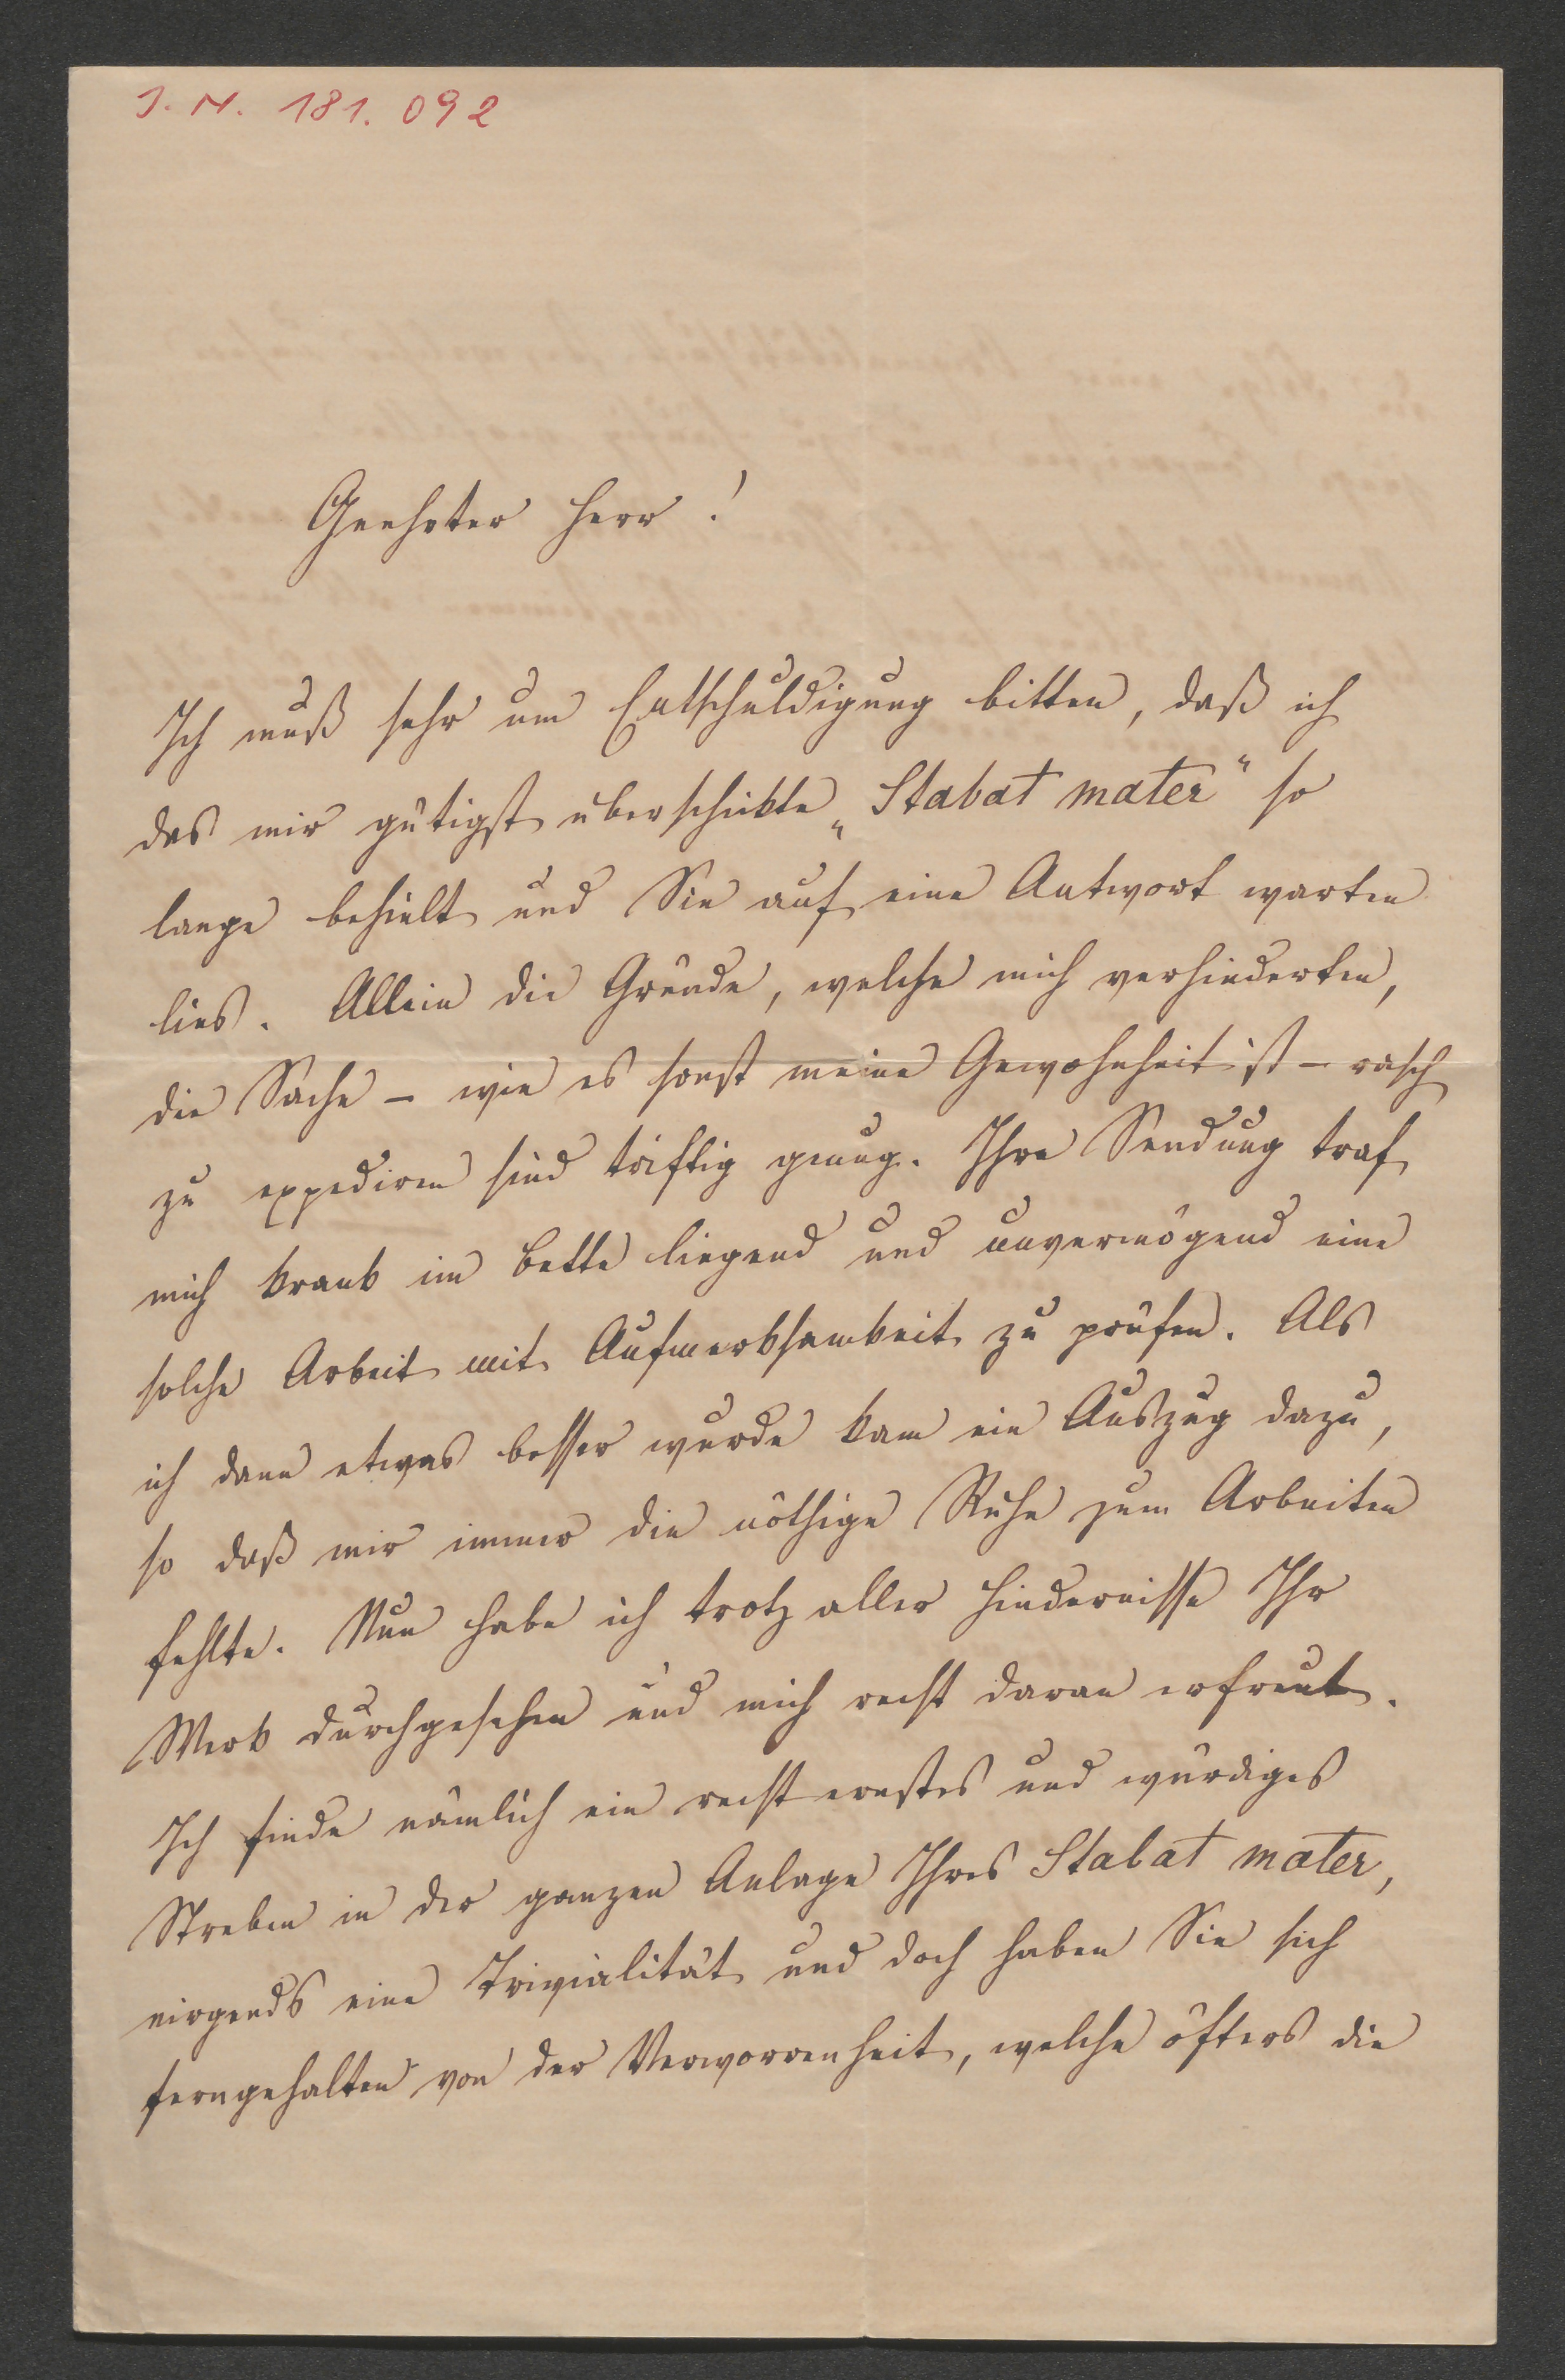 J. N. 181. 092
Geehrter Herr!
Ich muß sehr um Entschuldigung bitten, daß ich
das mir gütigst überschickte „Stabat mater“ so
lange behielt und Sie auf eine Antwort warten
lies. Allein die Gründe, welche mich verhinderten,
die Sache – wie es sonst meine Gewohnheit ist – rasch
zu expediren sind triftig genug. Ihre Sendung traf
mich krank im Bette liegend und unvermögend eine
solche Arbeit mit Aufmerksamkeit zu prüfen. Als
ich dann etwas besser wurde kam ein Auszug dazu,
so daß mir immer die nöthige Ruhe zum Arbeiten
fehlte. Nun habe ich trotz aller Hindernisse Ihr
Werk durchgesehen und mich recht daran erfreut.
Ich finde nämlich ein recht ernstes und würdiges
Streben in der ganzen Anlage Ihres Stabat mater,
nirgends eine Trivialität und doch haben Sie sich
ferngehalten von der Verworrenheit, welche öfters die